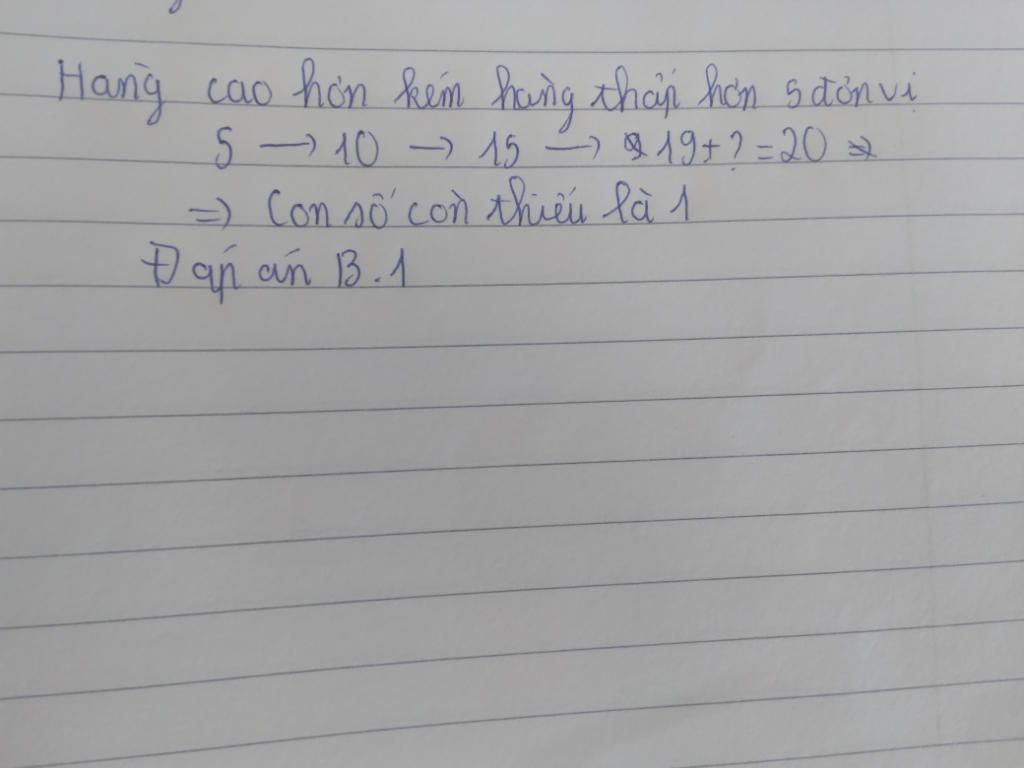 Hàng cao hơn kém hàng thấp hơn 5 đơn vị
5 → 10 → 15 → 19 + ? = 20
⇒ Con số còn thiếu là 1
Đáp án B. 1